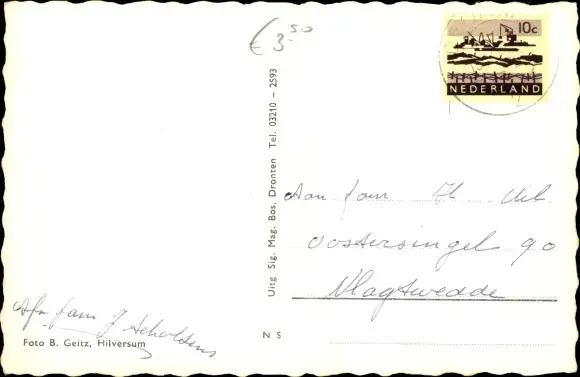 € 3.50
10c
NEDERLAND
Uitg Sig. Mag. Bos, Dronten Tel. 03210 - 2593
Aan fam
Oostersingel 90
Vlagtwedde
Afz. fam J Scholtens
Foto B. Geitz, Hilversum
N S